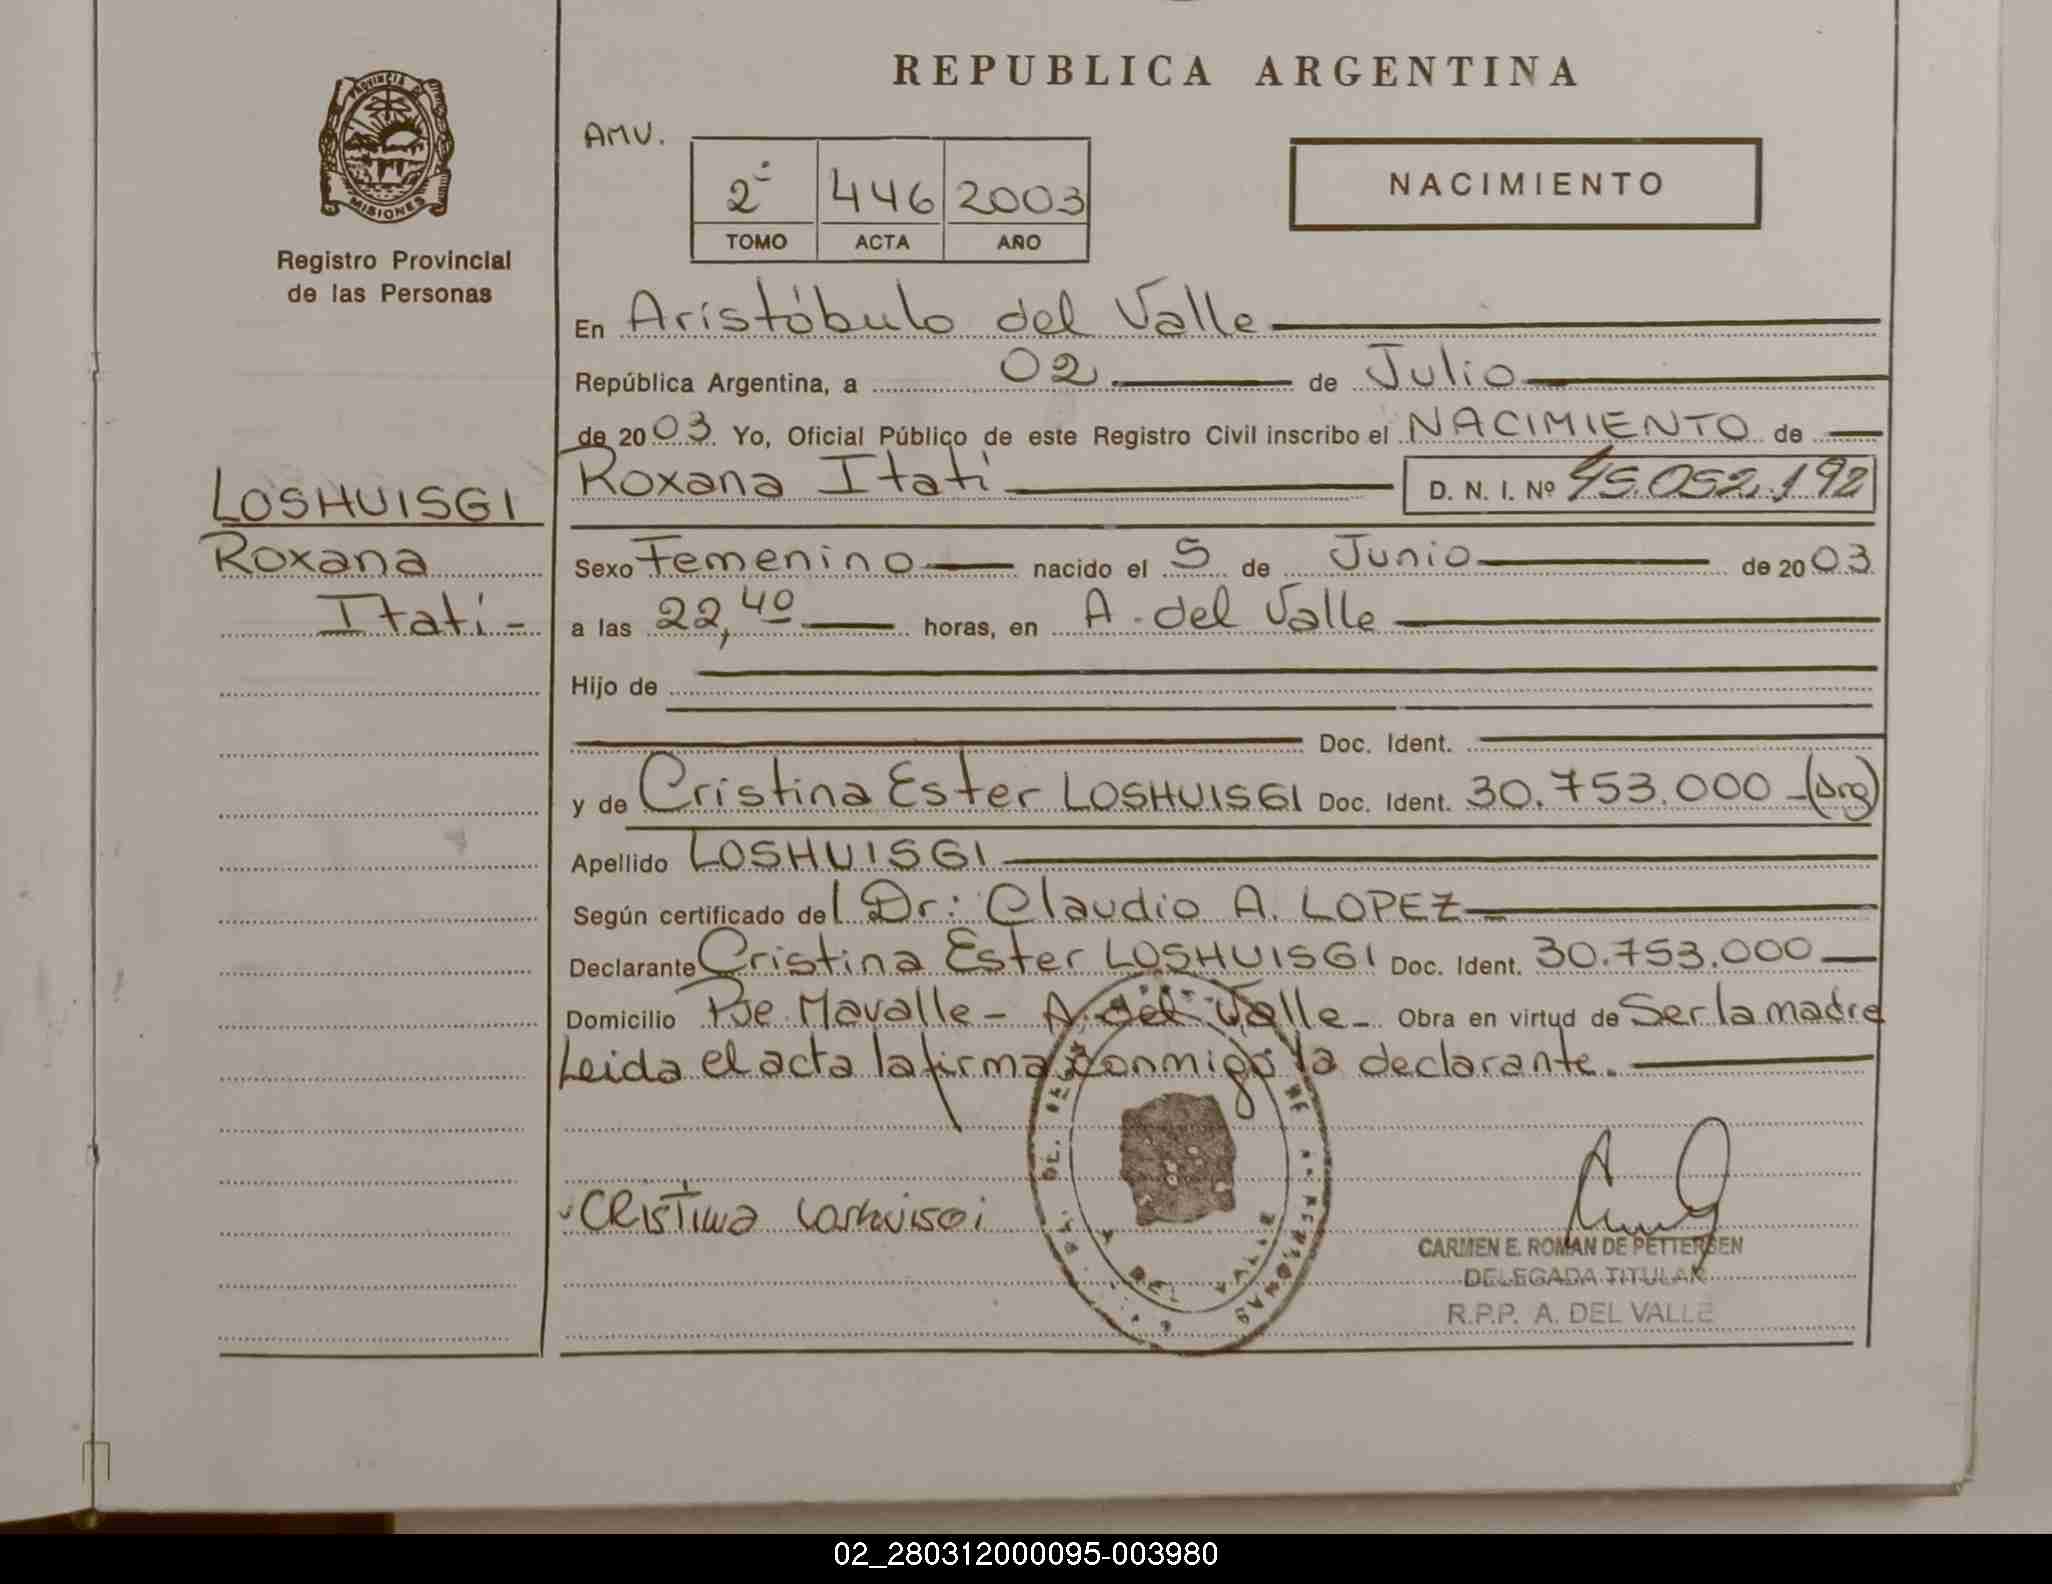 REPUBLICA ARGENTINA
AMV.
2º 446 2003
TOMO ACTA AÑO
NACIMIENTO
PROVINCIA DE MISIONES
Registro Provincial
de las Personas
En Aristóbulo del Valle
República Argentina, a 02 de Julio
de 2003. Yo, Oficial Público de este Registro Civil inscribo el NACIMIENTO de
Roxana Itatí D. N. I. Nº 45.052.192
LOSHUISGI
Roxana
Itatí-
Sexo Femenino nacido el 5 de Junio de 2003
a las 22,40 horas, en A. del Valle
Hijo de
Doc. Ident.
y de Cristina Ester LOSHUISGI Doc. Ident. 30.753.000 - (Arg)
Apellido LOSHUISGI
Según certificado del Dr: Claudio A. LOPEZ
Declarante Cristina Ester LOSHUISGI Doc. Ident. 30.753.000
Domicilio Pje Mavalle - A. del Valle - Obra en virtud de Ser la madre
Leida el acta la firma conmigo la declarante.
CRISTINA LOSHUISGI
CARMEN E. ROMAN DE PETTERSEN
DELEGADA TITULAR
R.P.P. A. DEL VALLE
02_280312000095-003980